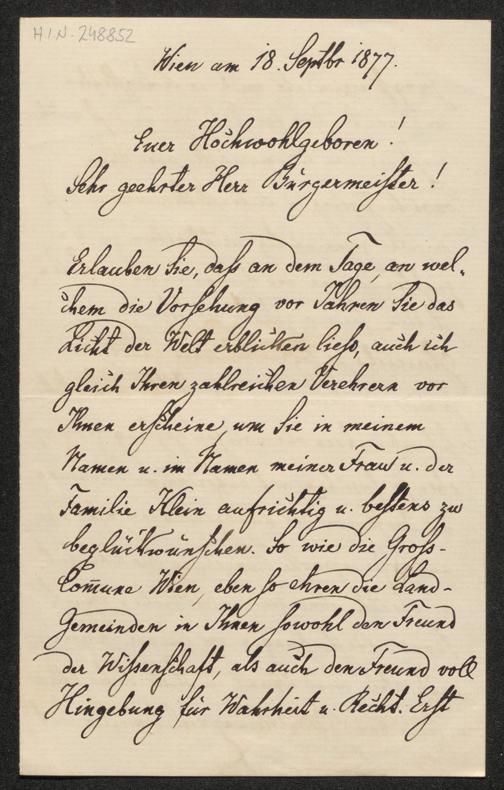 H.I.N. 248852
Wien am 18. Septbr 1877.
Euer Hochwohlgeboren!
Sehr geehrter Herr Bürgermeister!
Erlauben Sie, daß an dem Tage, an wel-
chem die Vorsehung vor Jahren Sie das
Licht der Welt erblicken ließ, auch ich
gleich Ihren zahlreichen Verehrern vor
Ihnen erscheine, um Sie in meinem
Namen u. im Namen meiner Frau u. der
Familie Klein aufrichtig u. bestens zu
beglückwünschen. So wie die Gross-
Com̄une Wien, eben so ehren die Land-
Gemeinden in Ihnen sowohl den Freund
der Wissenschaft, als auch den Freund voll
Hingebung für Wahrheit u. Recht. Erst